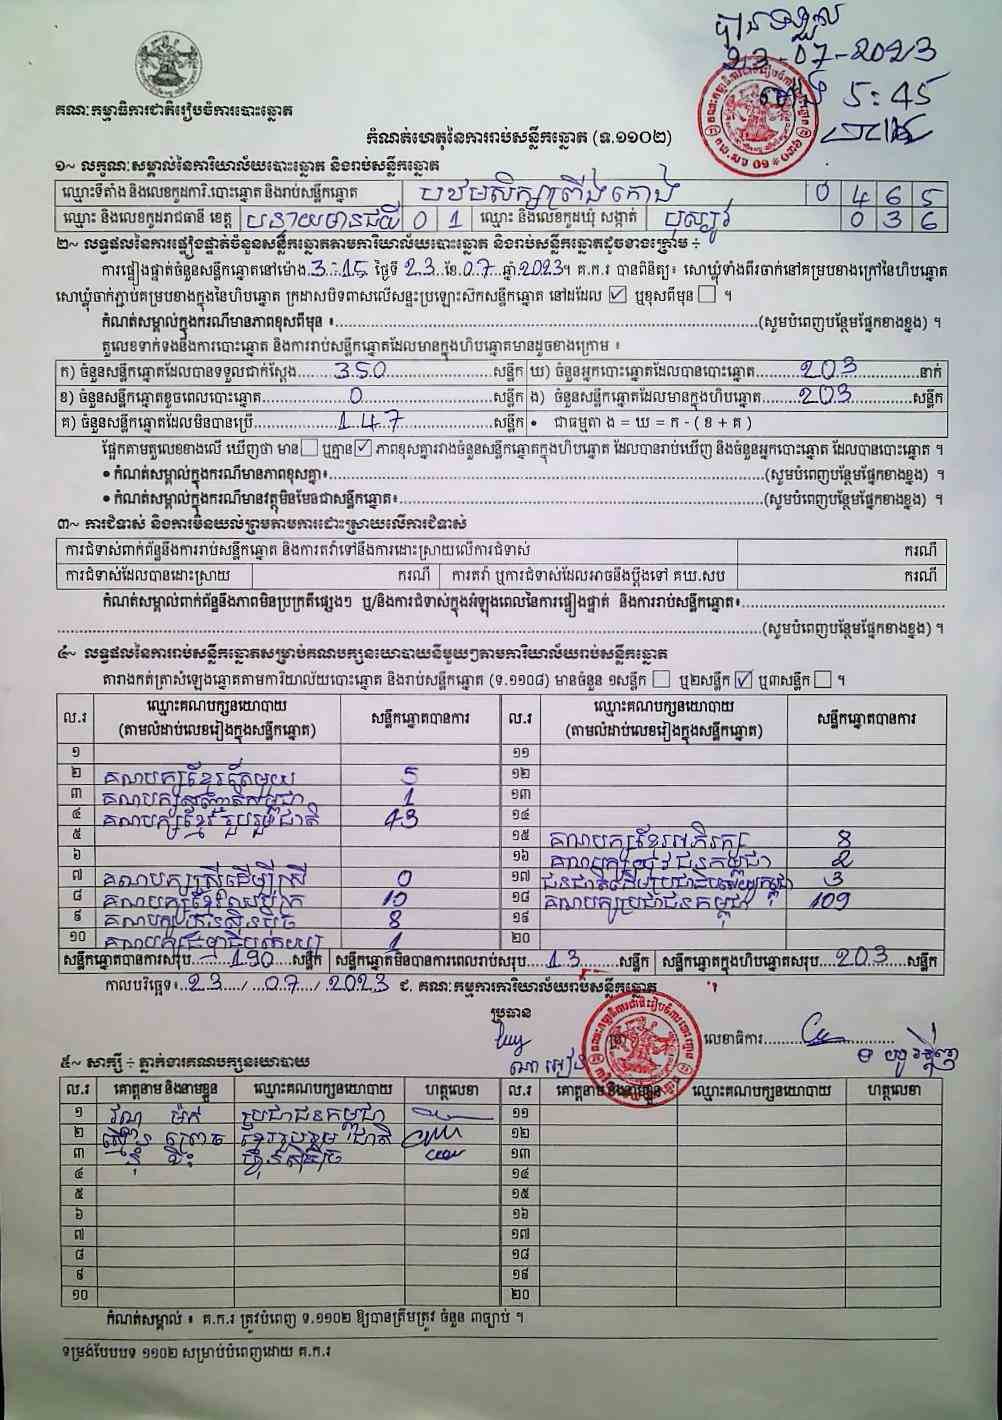 បានទទួល
23-07-2023
ម៉ោង 5:45
គណៈកម្មាធិការជាតិរៀបចំការបោះឆ្នោត
កំណត់ហេតុនៃការរាប់សន្លឹកឆ្នោត (ទ.១១០២)
១~ លក្ខណៈសម្គាល់នៃការិយាល័យបោះឆ្នោត និងរាប់សន្លឹកឆ្នោត
ឈ្មោះទីតាំង និងលេខកូដការិ.បោះឆ្នោត និងរាប់សន្លឹកឆ្នោត បឋមសិក្សាព្រីងកោង 0 4 6 5
ឈ្មោះ និងលេខកូដរាជធានី ខេត្ត បន្ទាយមានជ័យ 0 1 ឈ្មោះ និងលេខកូដឃុំ សង្កាត់ បុស្បូវ 0 3 6
២~ លទ្ធផលនៃការផ្ទៀងផ្ទាត់ចំនួនសន្លឹកឆ្នោតតាមការិយាល័យបោះឆ្នោត និងរាប់សន្លឹកឆ្នោតដូចខាងក្រោម ÷
ការផ្ទៀងផ្ទាត់ចំនួនសន្លឹកឆ្នោតនៅម៉ោង 3:15 ថ្ងៃទី 23 ខែ 07 ឆ្នាំ 2023។ គ.ក.រ បានពិនិត្យ៖ សោឃ្លុំទាំងពីរចាក់នៅគម្របខាងក្រៅនៃហិបឆ្នោត
សោឃ្លុំចាក់ភ្ជាប់គម្របខាងក្នុងនៃហិបឆ្នោត ក្រដាសបិទពាសលើសន្ទះប្រឡោះស៊កសន្លឹកឆ្នោត នៅដដែល ☑ ឬខុសពីមុន ☐ ។
កំណត់សម្គាល់ក្នុងករណីមានភាពខុសពីមុន ៖ (សូមបំពេញបន្ថែមផ្នែកខាងខ្នង) ។
តួលេខទាក់ទងនឹងការបោះឆ្នោត និងការរាប់សន្លឹកឆ្នោតដែលមានក្នុងហិបឆ្នោតមានដូចខាងក្រោម ៖
ក) ចំនួនសន្លឹកឆ្នោតដែលបានទទួលជាក់ស្តែង 350 សន្លឹក ឃ) ចំនួនអ្នកបោះឆ្នោតដែលបានបោះឆ្នោត 203 នាក់
ខ) ចំនួនសន្លឹកឆ្នោតខូចពេលបោះឆ្នោត 0 សន្លឹក ង) ចំនួនសន្លឹកឆ្នោតដែលមានក្នុងហិបឆ្នោត 203 សន្លឹក
គ) ចំនួនសន្លឹកឆ្នោតដែលមិនបានប្រើ 147 សន្លឹក • ជាធម្មតា ង = ឃ = ក - ( ខ + គ )
ផ្អែកតាមតួលេខខាងលើ ឃើញថា មាន ☐ ឬគ្មាន ☑ ភាពខុសគ្នារវាងចំនួនសន្លឹកឆ្នោតក្នុងហិបឆ្នោត ដែលបានរាប់ឃើញ និងចំនួនអ្នកបោះឆ្នោត ដែលបានបោះឆ្នោត ។
• កំណត់សម្គាល់ក្នុងករណីមានភាពខុសគ្នា៖ (សូមបំពេញបន្ថែមផ្នែកខាងខ្នង) ។
• កំណត់សម្គាល់ក្នុងករណីមានវត្ថុមិនមែនជាសន្លឹកឆ្នោត៖ (សូមបំពេញបន្ថែមផ្នែកខាងខ្នង) ។
៣~ ការជំទាស់ និងការមិនយល់ព្រមតាមការដោះស្រាយលើការជំទាស់
ការជំទាស់ពាក់ព័ន្ធនឹងការរាប់សន្លឹកឆ្នោត និងការតវ៉ាទៅនឹងការដោះស្រាយលើការជំទាស់ ករណី
ការជំទាស់ដែលបានដោះស្រាយ ករណី ការតវ៉ា ឬការជំទាស់ដែលអាចនឹងប្តឹងទៅ គឃ.សប ករណី
កំណត់សម្គាល់ពាក់ព័ន្ធនឹងភាពមិនប្រក្រតីផ្សេងៗ ឬ/និងការជំទាស់ក្នុងអំឡុងពេលនៃការផ្ទៀងផ្ទាត់ និងការរាប់សន្លឹកឆ្នោត៖
(សូមបំពេញបន្ថែមផ្នែកខាងខ្នង) ។
៤~ លទ្ធផលនៃការរាប់សន្លឹកឆ្នោតសម្រាប់គណបក្សនយោបាយនីមួយៗតាមការិយាល័យរាប់សន្លឹកឆ្នោត
តារាងកត់ត្រាសំឡេងឆ្នោតតាមការិយាល័យបោះឆ្នោត និងរាប់សន្លឹកឆ្នោត (ទ.១១០៨) មានចំនួន ១សន្លឹក ☐ ឬ២សន្លឹក ☑ ឬ៣សន្លឹក ☐ ។
ល.រ ឈ្មោះគណបក្សនយោបាយ (តាមលំដាប់លេខរៀងក្នុងសន្លឹកឆ្នោត) សន្លឹកឆ្នោតបានការ ល.រ ឈ្មោះគណបក្សនយោបាយ (តាមលំដាប់លេខរៀងក្នុងសន្លឹកឆ្នោត) សន្លឹកឆ្នោតបានការ
១ ១១
២ គណបក្សខ្មែរតែមួយ 5 ១២
៣ គណបក្សសញ្ជាតិកម្ពុជា 1 ១៣
៤ គណបក្សខ្មែររួបរួមជាតិ 43 ១៤
៥ ១៥ គណបក្សខ្មែរអភិរក្ស 8
៦ ១៦ គណបក្សឆន្ទៈជនកម្ពុជា 2
៧ គណបក្សស្រីដើម្បីស្រី 0 ១៧ ជនជាតិដើមប្រជាធិបតេយ្យកម្ពុជា 3
៨ គណបក្សខ្មែរឈប់ក្រ 10 ១៨ គណបក្សប្រជាជនកម្ពុជា 109
៩ គណបក្សហ៊្វុនស៊ិនប៉ិច 8 ១៩
១០ គណបក្ស 1 ២០
សន្លឹកឆ្នោតបានការសរុប 190 សន្លឹក សន្លឹកឆ្នោតមិនបានការពេលរាប់សរុប 13 សន្លឹក សន្លឹកឆ្នោតក្នុងហិបឆ្នោតសរុប 203 សន្លឹក
កាលបរិច្ឆេទ៖ 23 / 07 / 2023 ជ. គណៈកម្មការការិយាល័យរាប់សន្លឹកឆ្នោត
ប្រធាន
លេខាធិការ
៥~ សាក្សី ÷ ភ្នាក់ងារគណបក្សនយោបាយ
ល.រ គោត្តនាម និងនាមខ្លួន ឈ្មោះគណបក្សនយោបាយ ហត្ថលេខា ល.រ គោត្តនាម និងនាមខ្លួន ឈ្មោះគណបក្សនយោបាយ ហត្ថលេខា
១ ប្រជាជនកម្ពុជា ១១
២ ខ្មែររួបរួមជាតិ ១២
៣ ហ៊្វុនស៊ិនប៉ិច ១៣
៤ ១៤
៥ ១៥
៦ ១៦
៧ ១៧
៨ ១៨
៩ ១៩
១០ ២០
កំណត់សម្គាល់ ៖ គ.ក.រ ត្រូវបំពេញ ទ.១១០២ ឱ្យបានត្រឹមត្រូវ ចំនួន ៣ច្បាប់ ។
ទម្រង់បែបបទ ១១០២ សម្រាប់បំពេញដោយ គ.ក.រ